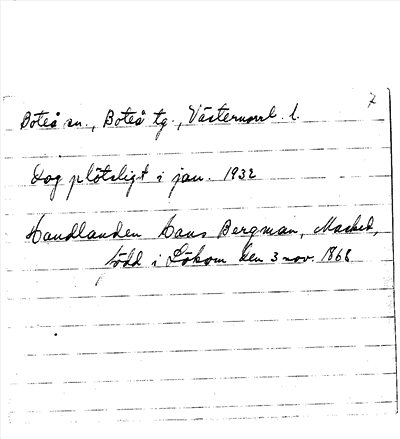 7
Boteå sn., Boteå tg., Västernorrl. l.
Dog plötsligt i jan. 1932
Handlanden Hans Bergman,
född i Lökom den 3 nov. 1868